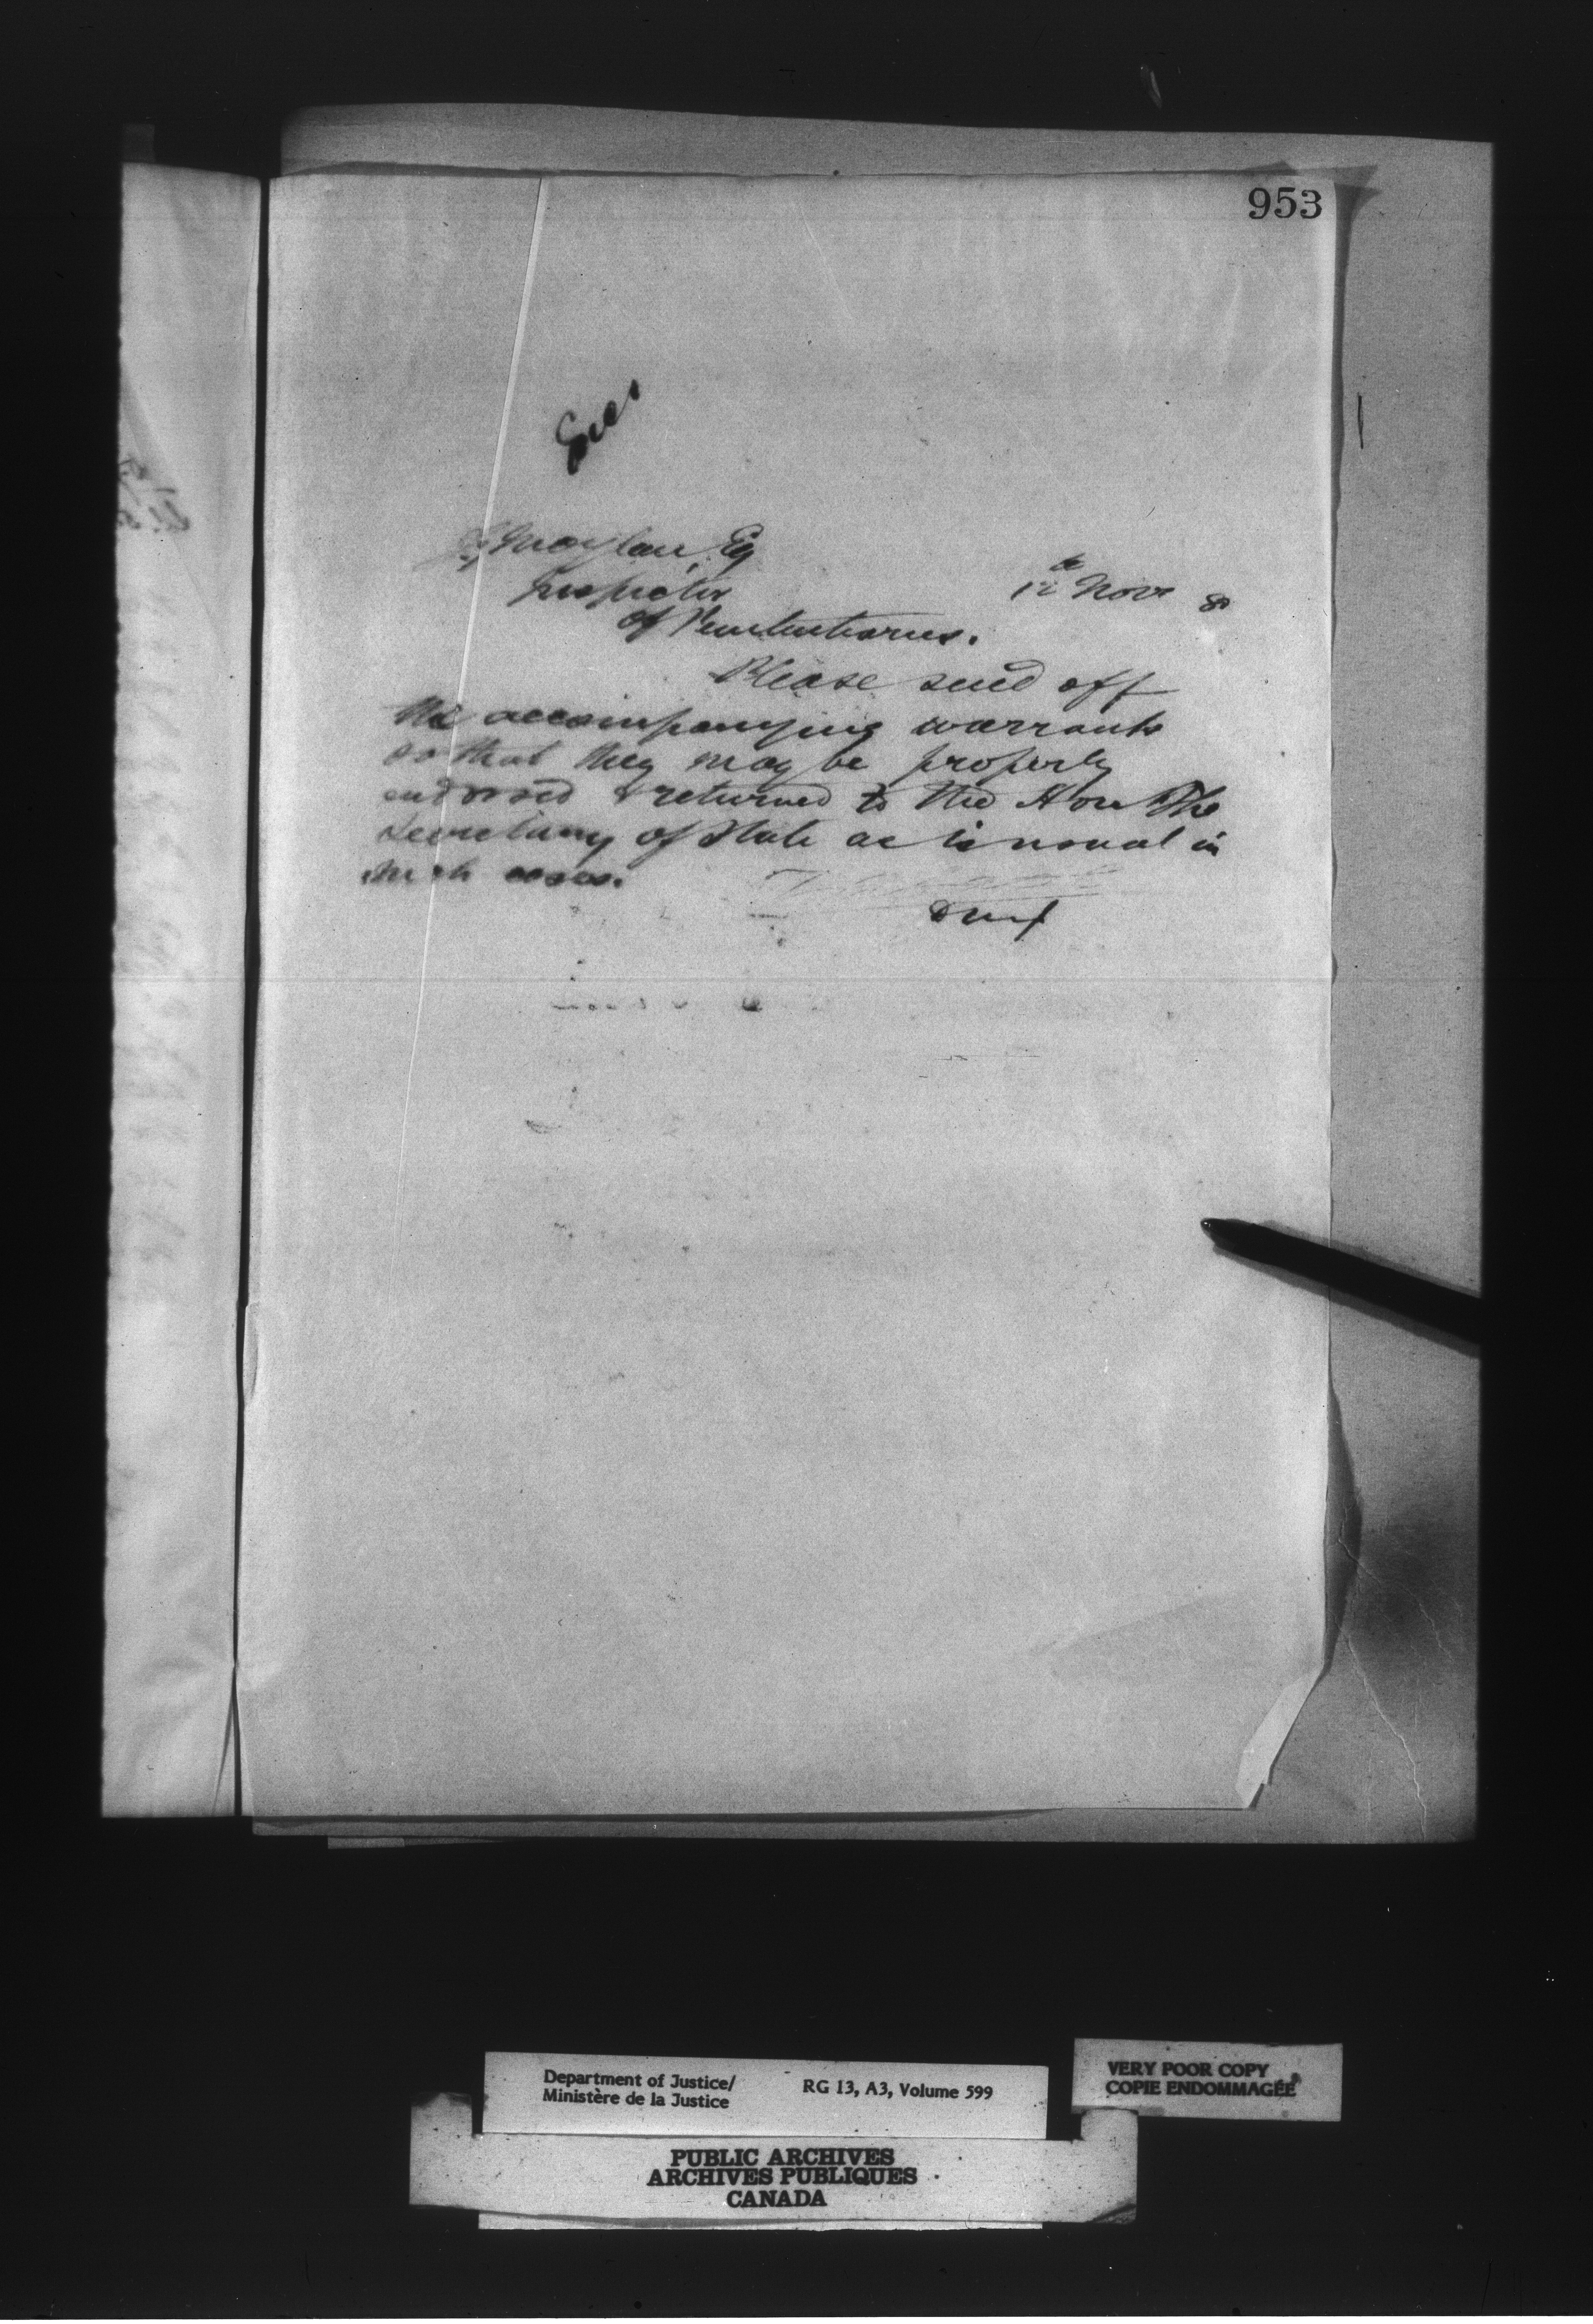 953
J G Moylan Esq
Inspector
12th Nov 80
of Penitentiaries.
Please send off
the accompanying warrants
so that they may be properly
endorsed & returned to the Hon The
Secretary of State as is usual in
such cases.
Department of Justice/
Ministère de la Justice
RG 13, A3, Volume 599
VERY POOR COPY
COPIE ENDOMMAGÉE
PUBLIC ARCHIVES
ARCHIVES PUBLIQUES
CANADA